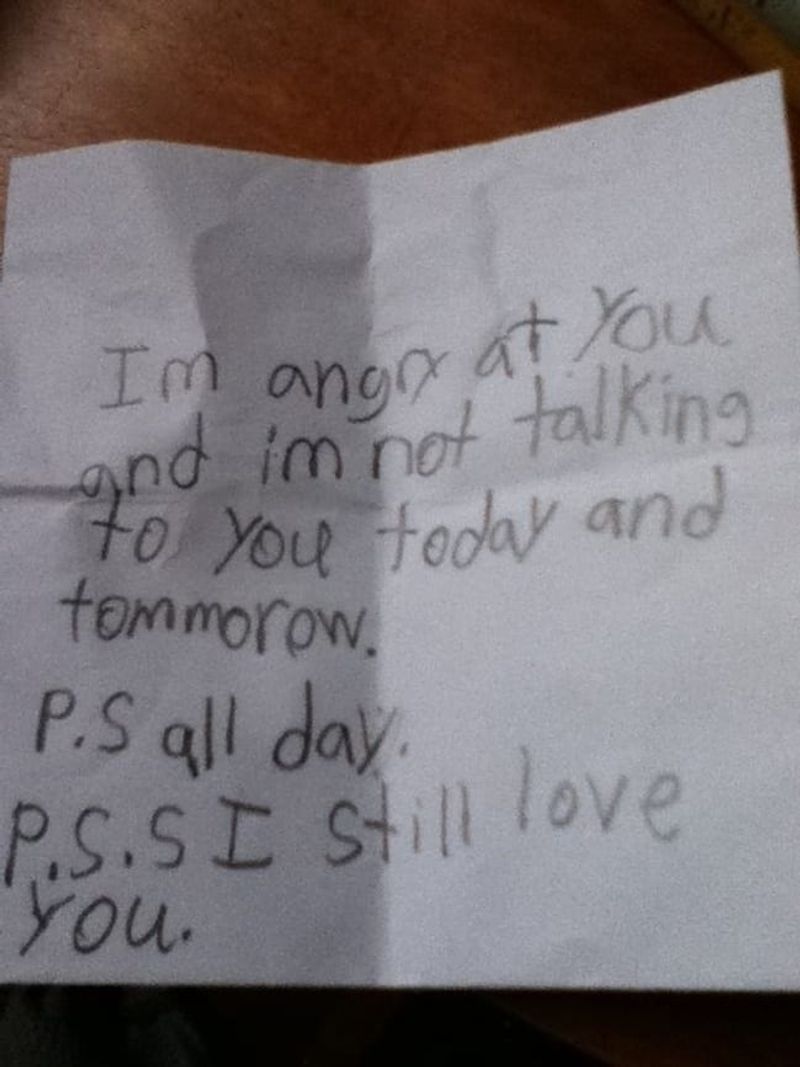 Im angry at You
and im not talking
to you today and
tommorow.
P.S all day.
P.S.S I still love
you.